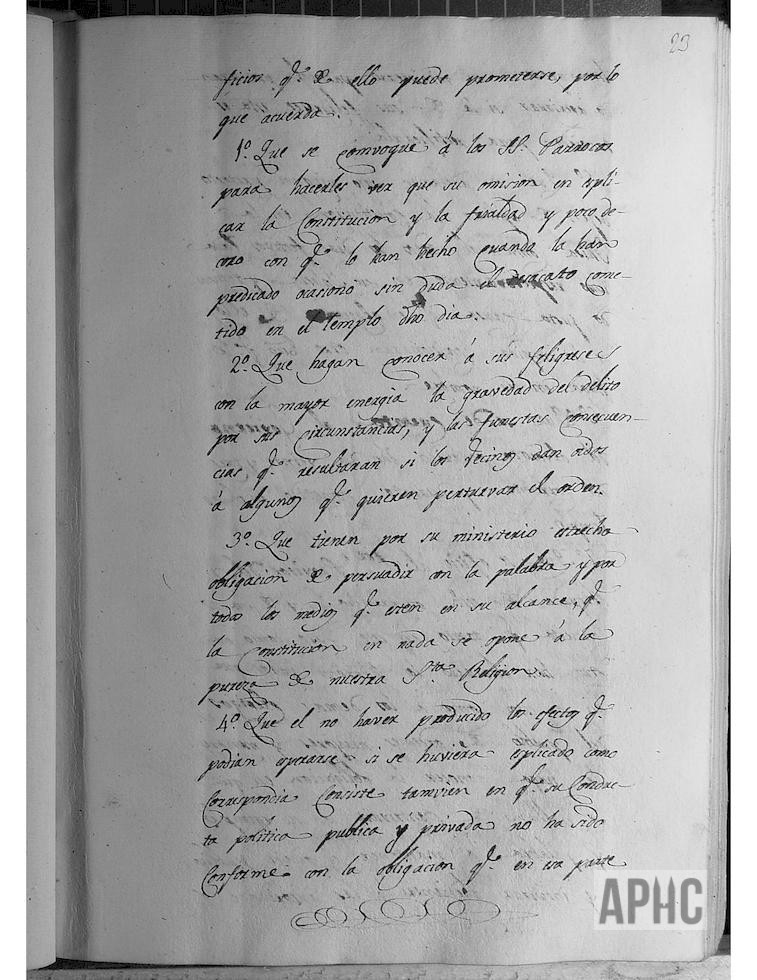 23
ficios q.e de ello puede prometerse, por lo
que acuerda.
1.o Que se comvoque á los SS. Parrocos
para hacerles ver que su omision en espli-
car la Constitucion y la frialdad y poco de-
coro con q.e lo han hecho quando la han
predicado ocasionó sin duda el desacato come-
tido en el templo dho dia.
2.o Que hagan conocer á sus feligreses
con la mayor energia la gravedad del delito
por sus circunstancias, y las funestas consecuen-
cias q.e resultaran si los vecinos dan oidos
á algunos q.e quieren perturvar el orden.
3.o Que tienen por su ministerio estrecha
obligacion de persuadir con la palabra y por
todos los medios q.e esten en su alcance, q.e
la Constitucion en nada se opone á la
pureza de nuestra S.ta Religion.
4.o Que el no haver producido los efectos q.e
podian operarse si se huviera esplicado como
Correspondia Consiste tamvien en q.e su Conduc-
ta politica publica y privada no ha sido
Conforme con la obligacion q.e en esa parte
APHC